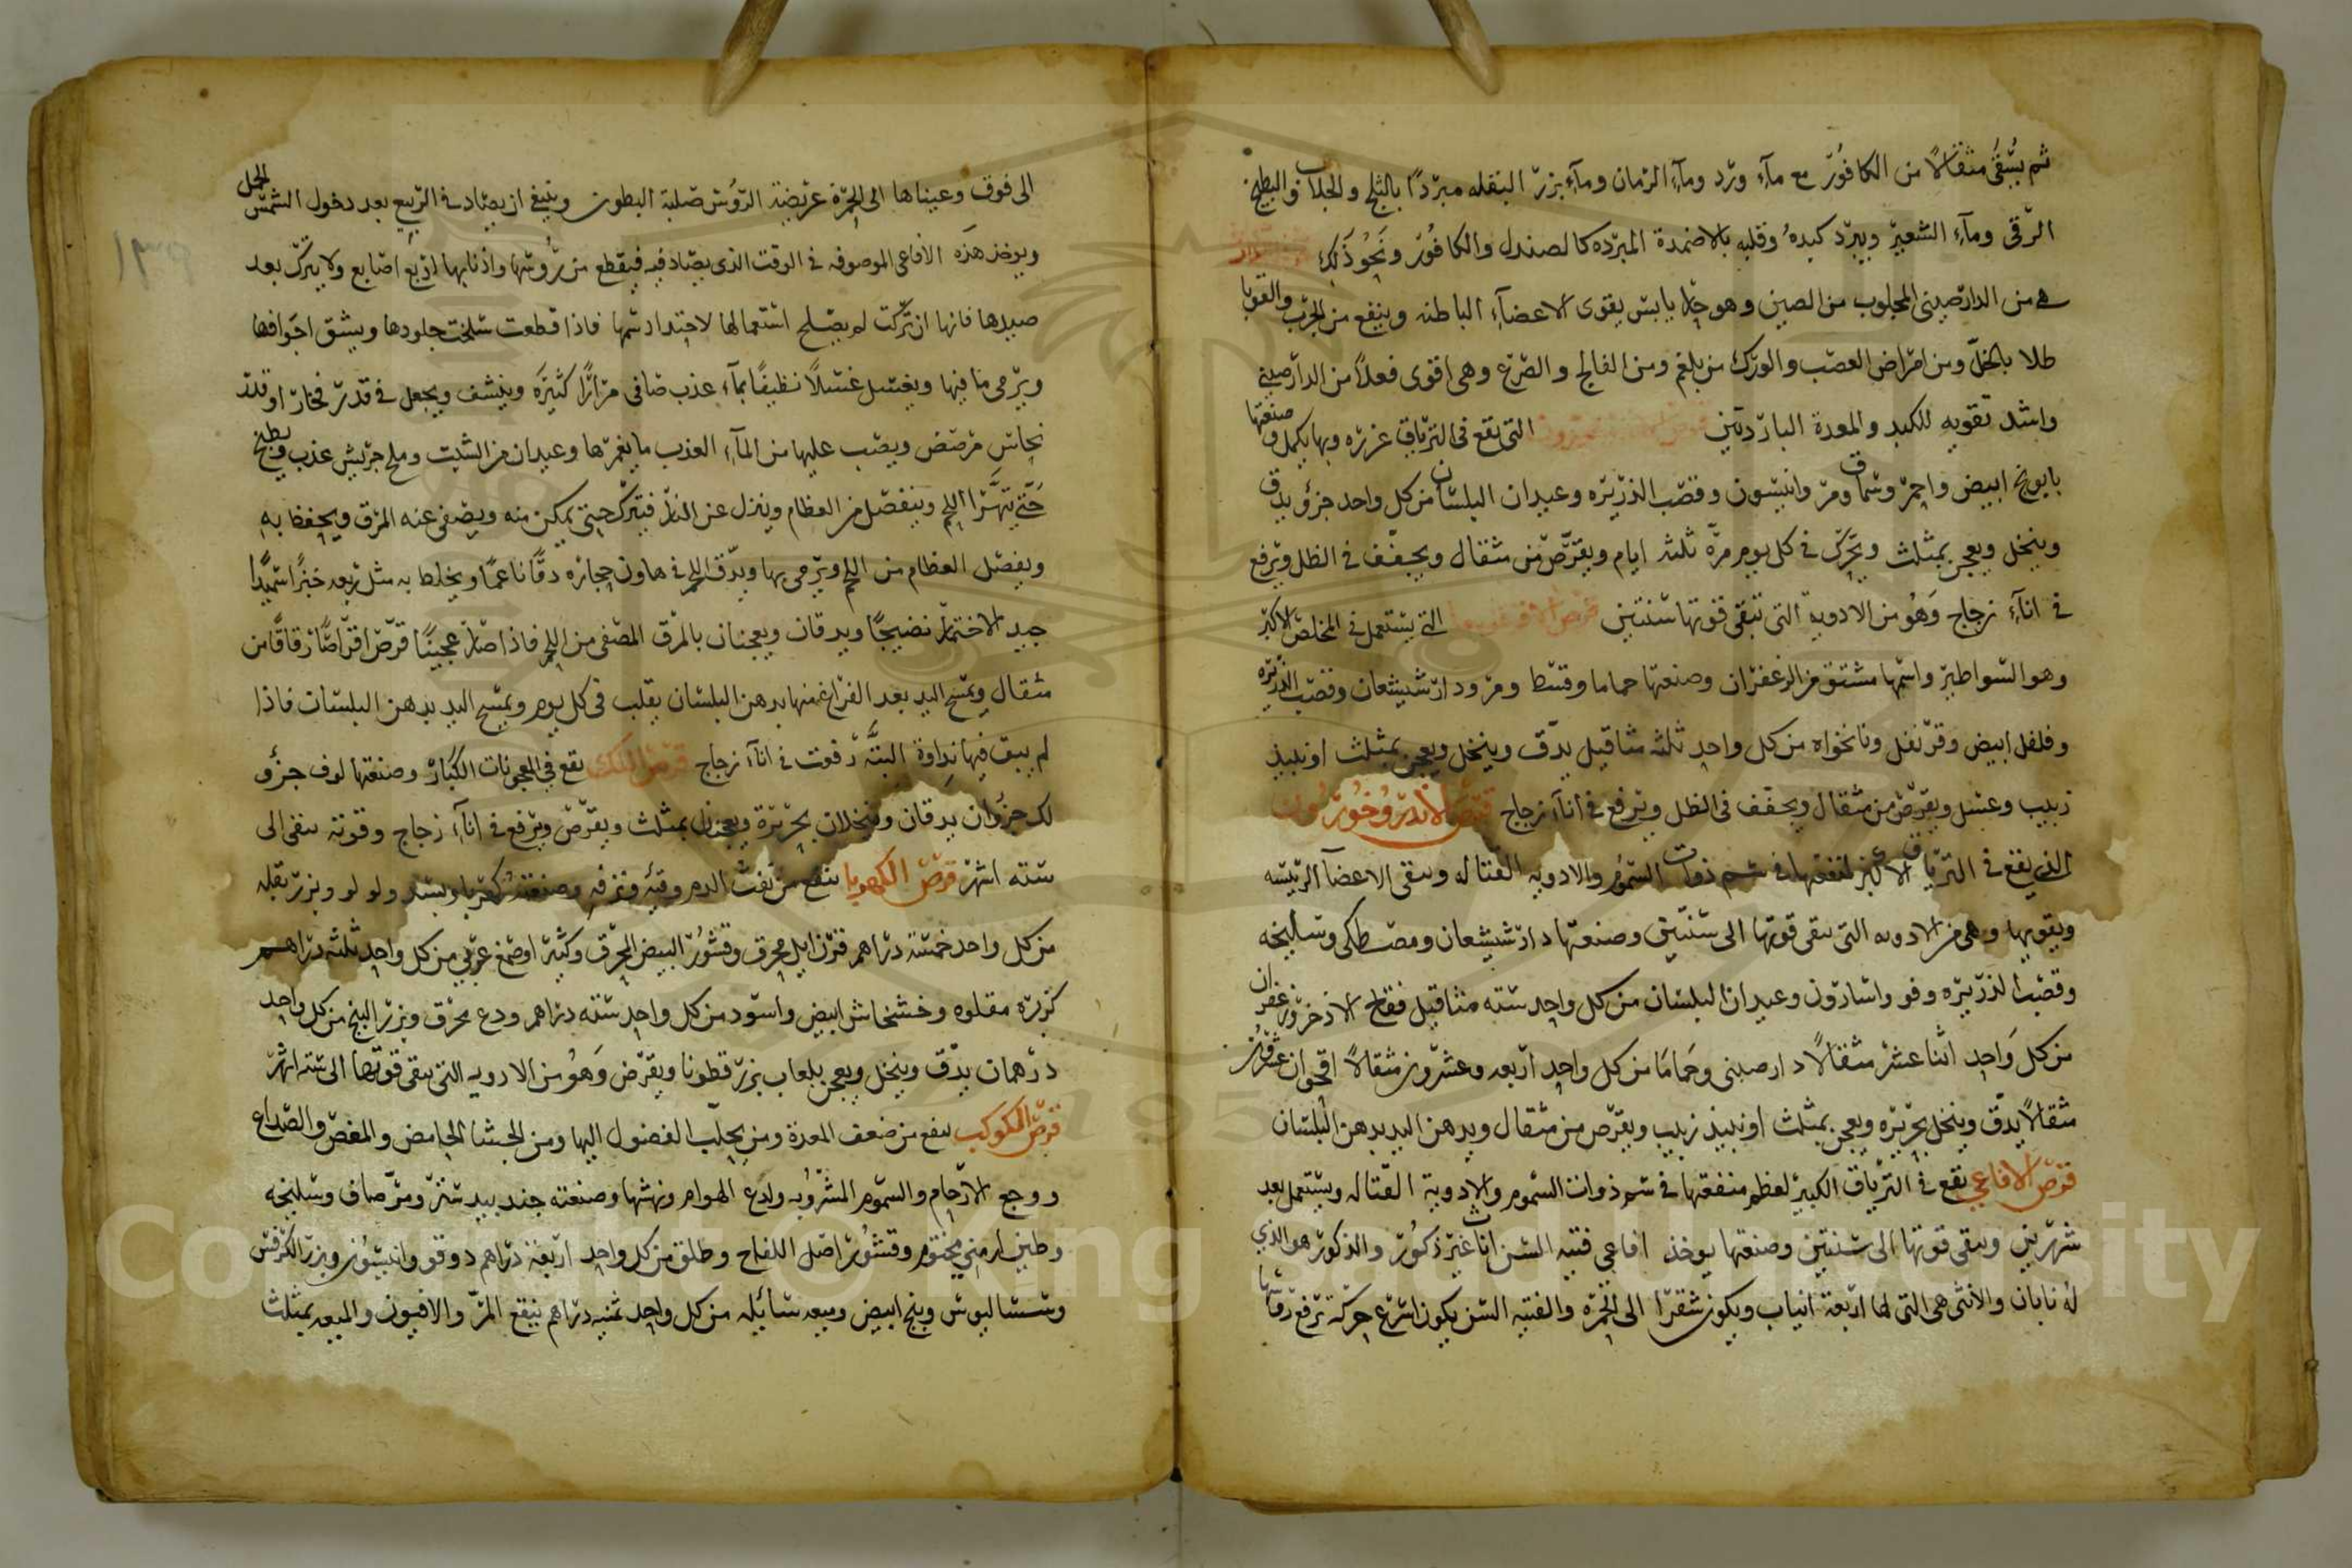 ثم يسقى مثقالا من الكافور مع ماء ورد وماء الرمان وماء بزر البقله مبردا بالثلج والجلاب والبطيخ
الرقى وماء الشعير ويبرد كبده وقلبه بالاضمدة المبرده كالصندل والكافور ونحو ذلك
هى من الدارصينى المجلوب من الصين وهو حار يابس يقوى الاعضاء الباطنه وينفع من الجرب والقوبا
طلا بالخل ومن امراض العصب والورك من بلغم ومن الفالج والصرع وهى اقوى فعلا من الدارصينى
واشد تقويه للكبد والمعدة الباردتين التى تقع فى الترياق عزره وبها يكمل وصنعتها
بابونج ابيض واحمر وسماق ومر وانيسون وقصب الذريره وعيدان البلسان من كل واحد جزؤ يدق
وينخل ويعجن بمثلث ويحرك فى كل يوم مرة ثلثة ايام ويقرص من مثقال ويجفف فى الظل ويرفع
فى اناء زجاج وهو من الادوية التى تبقى قوتها سنتين قرص التى يستعمل فى المخلص الاكبر
وهو السواطير واسمها مشتق من الزعفران وصنعتها حماما وقسط ومر ودارشيشعان وقصب الذريره
وفلفل ابيض وقرنفل ونانخواه من كل واحد ثلثة مثاقيل يدق وينخل ويعجن بمثلث او نبيذ
زبيب وعسل ويقرص من مثقال ويجفف فى الظل ويرفع فى اناء زجاج قرص الاندروخورون
الذى يقع فى الترياق الاكبر لنفعها فى سم ذوات السموم والادويه القتاله وينقى الاعضاء الرئيسه
ويقويها وهى من الادويه التى تبقى قوتها الى سنتين وصنعتها دارشيشعان ومصطكى وسليخه
وقصب الذريره وفو واسارون وعيدان البلسان من كل واحد سته مثاقيل فقاح الاذخر وزعفران
من كل واحد اثنا عشر مثقالا دارصينى وحماما من كل واحد اربعه وعشرون مثقالا اقحوان عشرون
مثقالا يدق وينخل بحريره ويعجن بمثلث او نبيذ زبيب ويقرص من مثقال ويدهن اليد بدهن البلسان
قرص الافاعى يقع فى الترياق الكبير لعظم منفعتها فى سم ذوات السموم والادوية القتاله ويستعمل بعد
شهرين ويبقى قوتها الى سنتين وصنعتها يوخذ افاعى فتيه السن اناث غير ذكور والذكور هو الذى
له نابان والانثى هى التى لها اربعة انياب ويكون شقرا الى الحمره والفتيه السن يكون اسرع حركة ترفع رقابها
الى فوق وعيناها الى الحمرة عريضة الرؤس صلبة البطون وينبغى ان يصاد فى الربيع بعد دخول الشمس الحمل
ويوخذ هذه الافاعى الموصوفه فى الوقت الذى يصاد فيه فيقطع من رؤسها واذنابها اربع اصابع ولا يترك بعد
صيدها فانها ان تركت لم يصلح استعمالها لاحتداد سمها فاذا قطعت سلخت جلودها ويشق اجوافها
ويرمى ما فيها ويغسل غسلا نظيفا بماء عذب صافى مرارا كثيره وينشف ويجعل فى قدر فخار او قدر
نحاس مرصص ويصب عليها من الماء العذب ما يغمرها وعيدان من الشبت وملح جريش عذب ويطبخ
حتى يتهرا اللحم وينفصل من العظام وينزل عن النار فيترك حتى يمكن منه ويصفى عنه المرق ويحفظ به
ويفصل العظام من اللحم ويرمى بها ويدق اللحم فى هاون حجاره دقا ناعما ويخلط به مثل ربعه خبزا سميذا
جيد الاختمار نضيجا ويدقان ويعجنان بالمرق المصفى من اللحم فاذا صار عجينا قرص اقراصا رقاقا من
مثقال ويمسح اليد بعد الفراغ منها بدهن البلسان يقلب فى كل يوم ويمسح اليد بدهن البلسان فاذا
لم يبق فيها نداوة البتة رفعت فى اناء زجاج قرص اللك يقع فى المعجونات الكبار وصنعتها لوف جزؤ
لك جزؤان يدقان وينخلان بحريرة ويعجنان بمثلث ويقرص ويرفع فى اناء زجاج وقوته تبقى الى
سته اشهر قرص الكهربا ينفع من نفث الدم وقيه ونزفه وصنعته كهربا وبسد ولولو وبزر بقله
من كل واحد خمسة دراهم قرن ايل محرق وقشور البيض المحرق وكثيرا وصمغ عربى من كل واحد ثلثة دراهم
كزبره مقلوه وخشخاش ابيض واسود من كل واحد سته دراهم ودع محرق وبزر البنج من كل واحد
درهمان يدق وينخل ويعجن بلعاب بزر قطونا ويقرص وهو من الادويه التى تبقى قوتها الى سته اشهر
قرص الكوكب ينفع من ضعف المعدة ومن يجلب الفضول اليها ومن الجشا الحامض والمغص والصداع
ووجع الارحام والسموم المشروبه ولدغ الهوام ونهشها وصنعته جندبيدستر ومر صاف وسليخه
وطين ارمنى مختوم وقشور اصل اللفاح وطلق من كل واحد اربعة دراهم دوقو وانيسون وبزر الكرفس
وسساليوس وبنج ابيض وميعه سائيله من كل واحد ثمنيه دراهم ينقع المر والافيون والميعه بمثلث